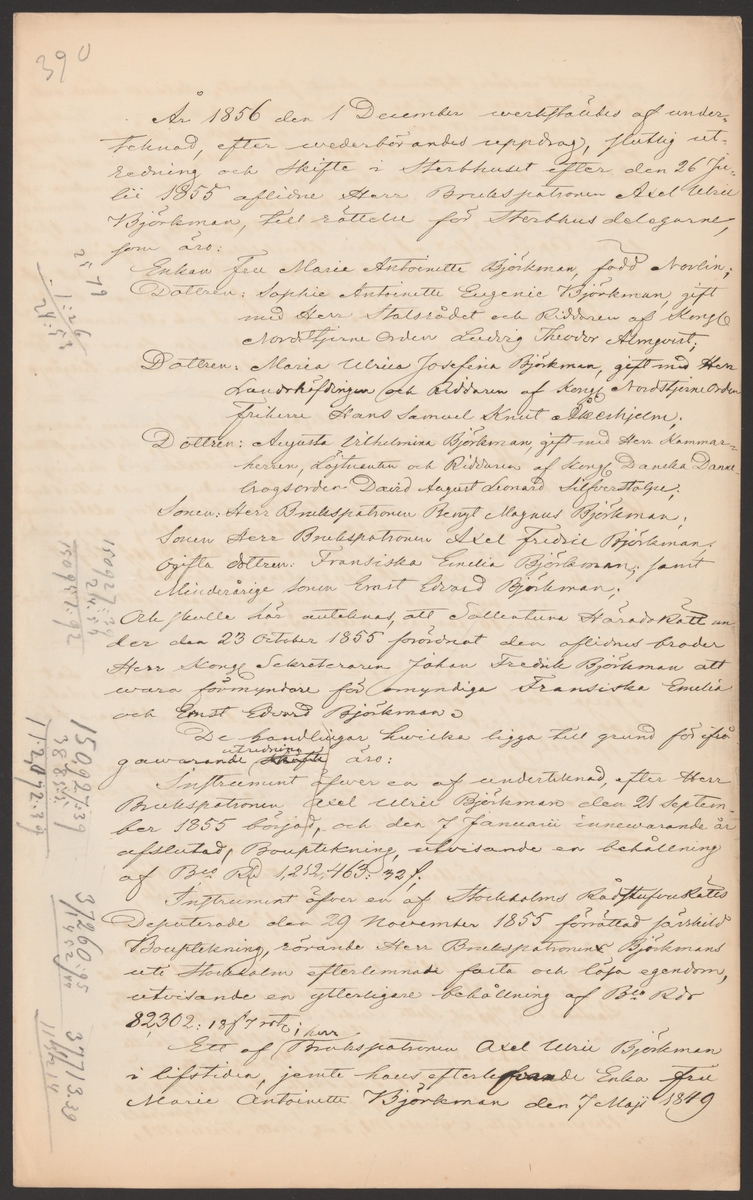 390
År 1856 den 1 December werkställdes af under-
tecknad, efter wederbörandes uppdrag, slutlig ut-
redning och skifte i Sterbhuset efter den 26 Ju-
lii 1855 aflidne Herr Brukspatronen Axel Ulric
Björkman, till rättelse för Sterbhusdelegarne,
som äro:
Enkan Fru Marie Antoinette Björkman, född Norlin;
Dottren: Sophie Antoinette Eugenie Björkman, gift
med Herr Statsrådet och Riddaren af Kongl
Nordstjerne Orden Ludvig Theodor Almqvist;
Dottren: Maria Ulrica Josefina Björkman, gift med Herr
Landshöfdingen och Riddaren af Kongl Nordstjerne Orden
Friherre Hans Samuel Knut Åkerhjelm;
Dottren: Augusta Vilhelmina Björkman, gift med Herr Kammar-
herren, Löjtnanten och Riddaren af Kongl Danska Danne-
brogsorden David August Leonard Silfverstolpe;
Sonen: Herr Brukspatronen Bengt Magnus Björkman;
Sonen Herr Brukspatronen Axel Fredric Björkman,
Ogifta dottren: Fransiska Emelia Björkman; samt
Minderårige Sonen Ernst Edvard Björkman;
Och skulle här antecknas, att Sollentuna Häradsrätt un-
der den 23 October 1855 förordnat den aflidnes broder
Herr Kongl Sekreteraren Johan Fredrik Björkman att
wara förmyndare för omyndiga Fransiska Emelia
och Ernst Edvard Björkman.
De handlingar hwilka ligga till grund för ifrå
gawarande utredning äro:
Instrument öfver en af undertecknad, efter Herr
Brukspatronen Axel Ulric Björkman den 21 Septem-
ber 1855 börjad, och den 7 Januarii innewarande år
afslutad, Bouptekning, utvisande en behållning
af Bco Rd 1,212,463: 32 f.
Instrument öfver en af Stockholms RådstufvuRätts
Deputerade den 29 November 1855 förrättad särskild
Bouptekning, rörande Herr Brukspatronen Björkmans
uti Stockholm efterlemnade fasta och lösa egendom,
utvisande en ytterligare behållning af Bco Rdr
82,302: 18 f 7 rst;
Ett af herr Brukspatronen Axel Ulric Björkman
i lifstiden, jemte hans efterlefvande Enka Fru
Marie Antoinette Björkman den 7 Maji 1849
150,927:39
37260:95
3773:39